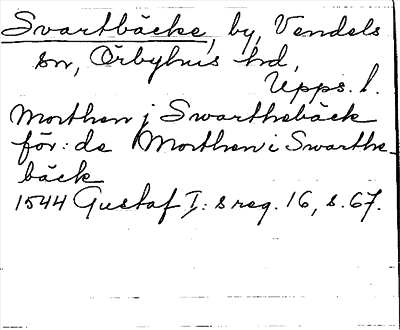 Svartbäcke, by, Vendels
sn, Örbyhus hd,
Upps. l.
Morthen j Swarthebäck
för: de Morthen i Swarthe-
bäck
1544 Gustaf I: s reg. 16, s. 67.